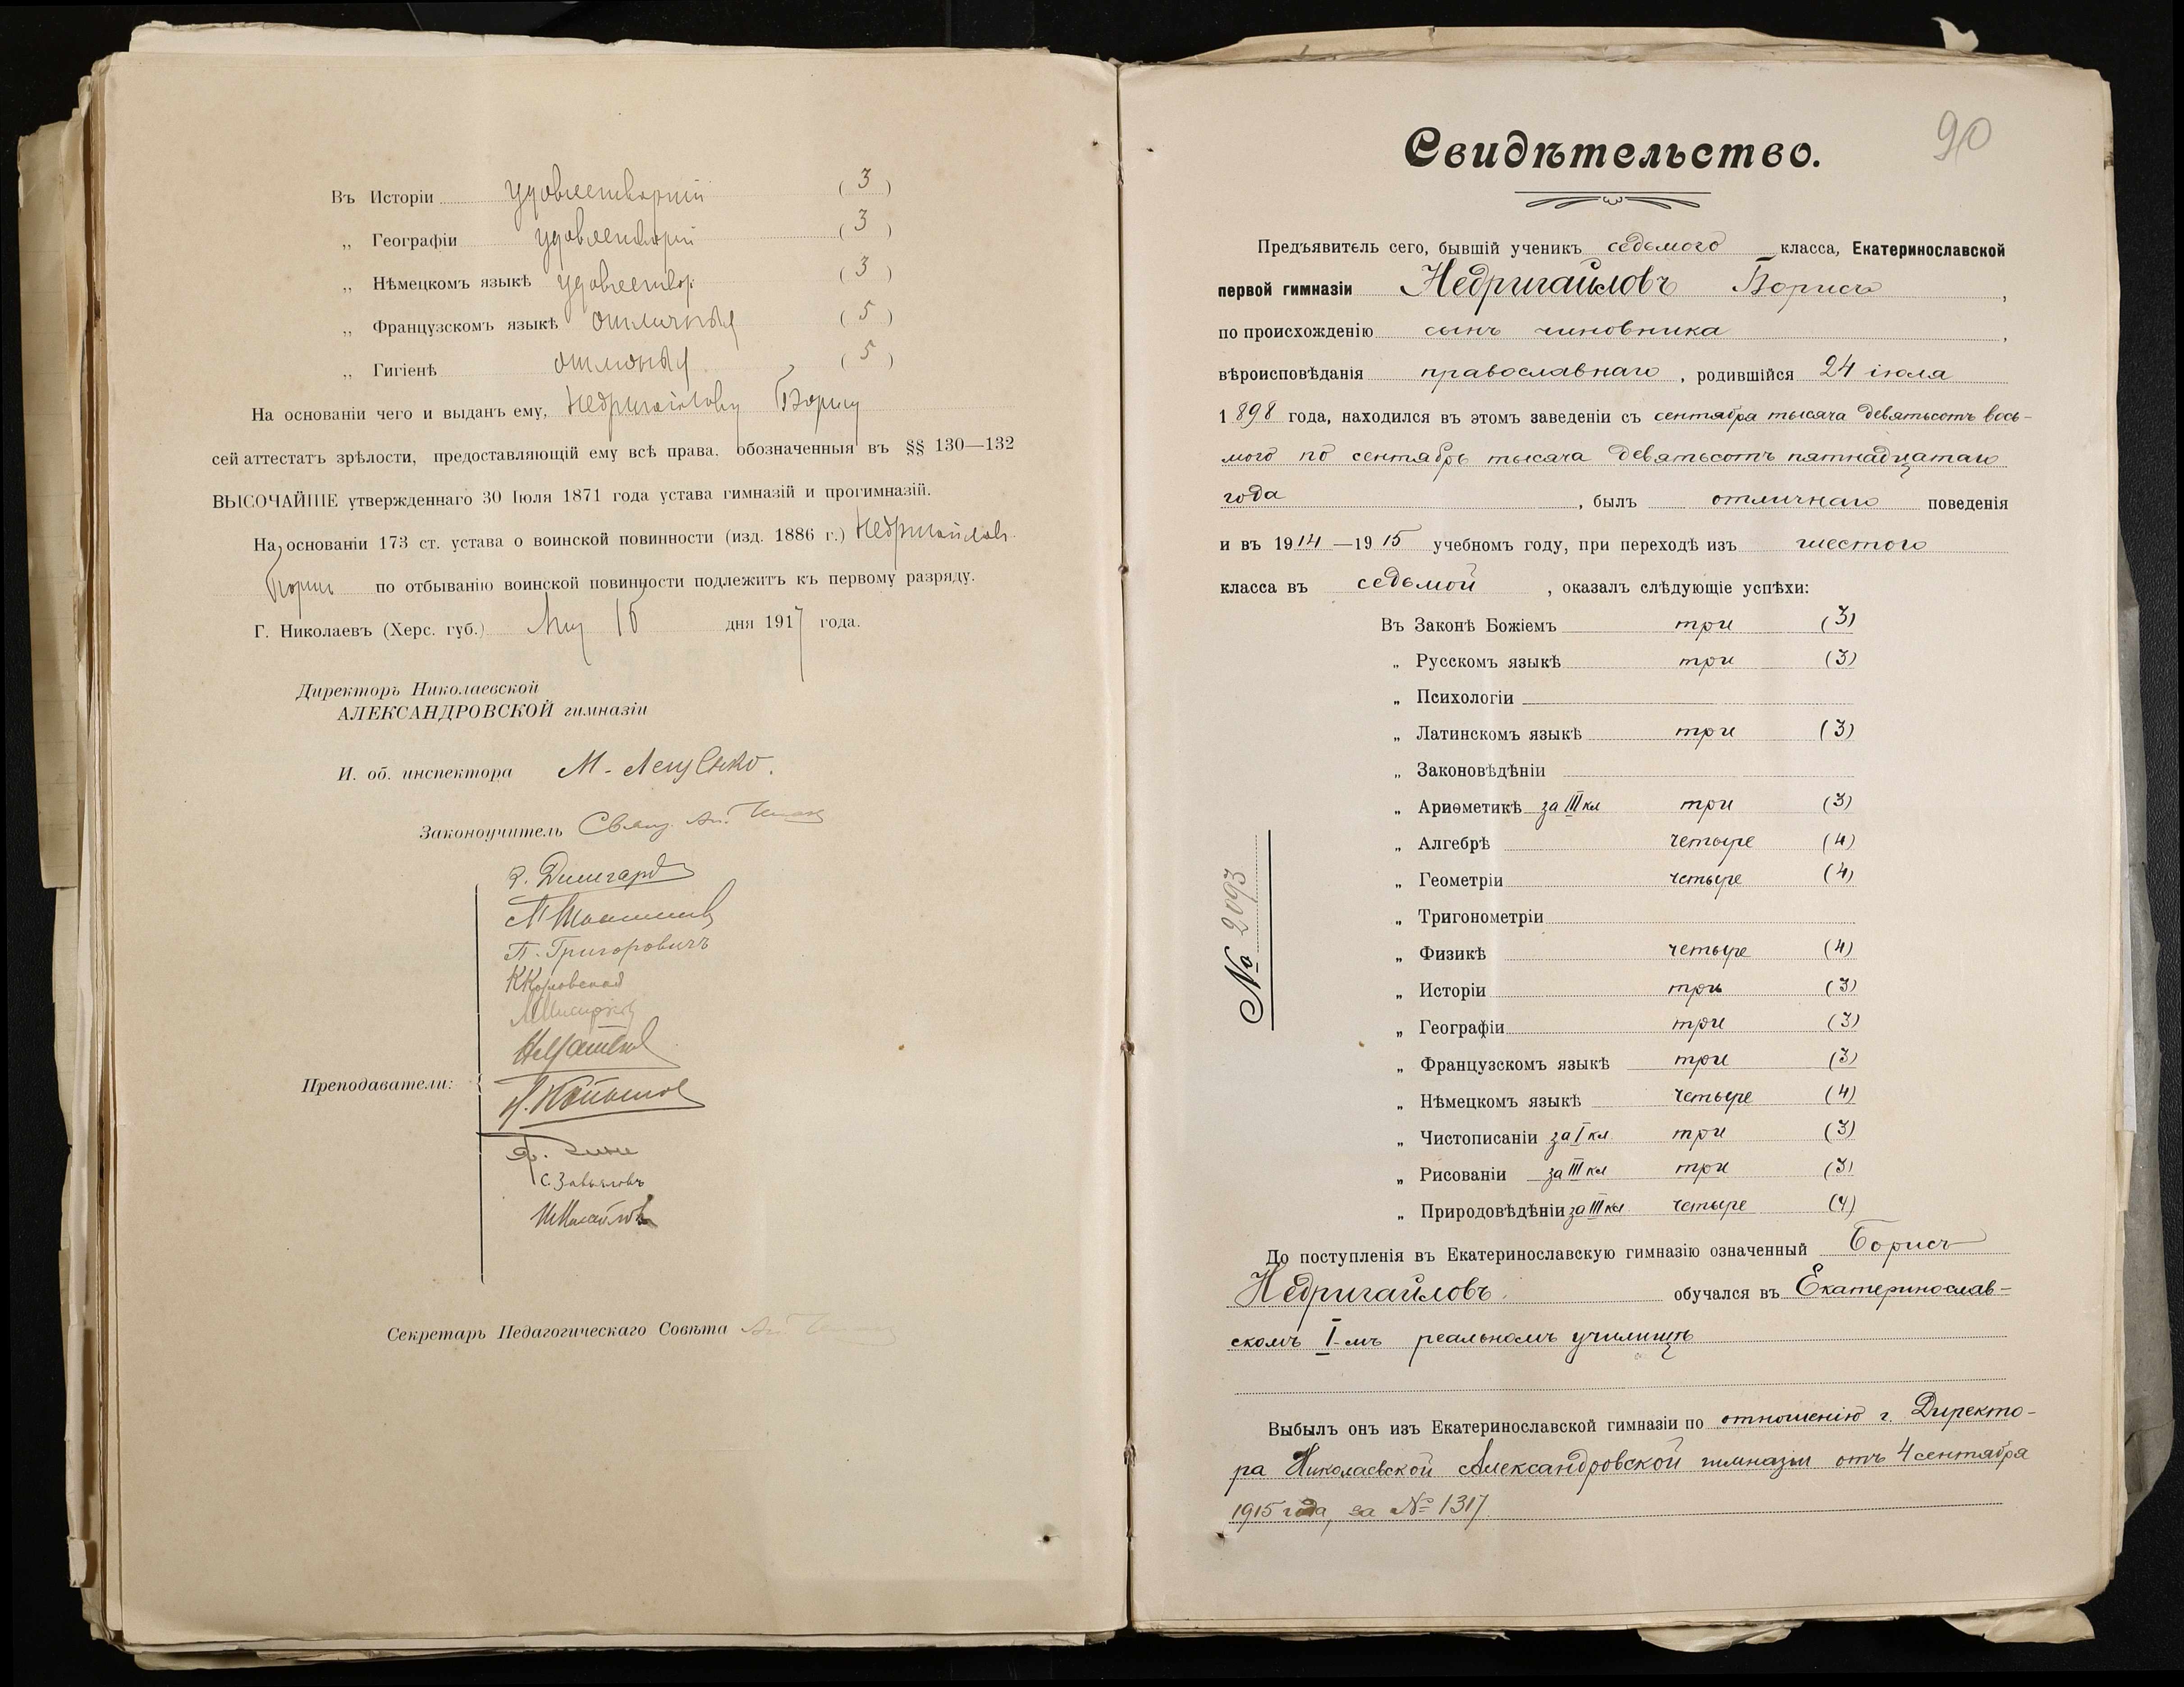 Въ Исторіи удовлетворит (3)
„ Географіи удовлетворит (3)
„ Нѣмецкомъ языкѣ удовлетвор. (3)
„ Французскомъ языкѣ отличныя (5)
„ Гигіенѣ отличныя (5)
На основаніи чего и выданъ ему, Недригайлову Борису
сей аттестатъ зрѣлости, предоставляющій ему всѣ права, обозначенныя въ §§ 130—132
ВЫСОЧАЙШЕ утвержденнаго 30 Іюля 1871 года устава гимназій и прогимназій.
На основаніи 173 ст. устава о воинской повинности (изд. 1886 г.) Недригайловъ
Борисъ по отбыванію воинской повинности подлежитъ къ первому разряду.
Г. Николаевъ (Херс. губ.) дня 1917 года.
Директоръ Николаевской
АЛЕКСАНДРОВСКОЙ гимназіи
И. об. инспектора М.
Законоучитель Свящ.
П. Григоровичъ
Преподаватели:
С. Завьяловъ
Секретарь Педагогическаго Совѣта
90
Свидѣтельство.
Предъявитель сего, бывшій ученикъ седьмого класса, Екатеринославской
первой гимназіи Недригайловъ Борисъ,
по происхожденію сынъ чиновника,
вѣроисповѣданія православнаго, родившійся 24 іюля
1898 года, находился въ этомъ заведеніи съ сентября тысяча девятьсотъ вось-
мого по сентябрь тысяча девятьсотъ пятнадцатаго
года, былъ отличнаго поведенія
и въ 1914—1915 учебномъ году, при переходѣ изъ шестого
класса въ седьмой, оказалъ слѣдующіе успѣхи:
Въ Законѣ Божіемъ три (3)
„ Русскомъ языкѣ три (3)
„ Психологіи
„ Латинскомъ языкѣ три (3)
„ Законовѣдѣніи
„ Ариѳметикѣ за III кл три (3)
„ Алгебрѣ четыре (4)
„ Геометріи четыре (4)
„ Тригонометріи
„ Физикѣ четыре (4)
„ Исторіи три (3)
„ Географіи три (3)
„ Французскомъ языкѣ три (3)
„ Нѣмецкомъ языкѣ четыре (4)
„ Чистописаніи за I кл. три (3)
„ Рисованіи за III кл три (3)
„ Природовѣдѣніи за III кл. четыре (4)
№ 2093
До поступленія въ Екатеринославскую гимназію означенный Борисъ
Недригайловъ. обучался въ Екатеринослав-
скомъ I-мъ реальномъ училищѣ
Выбылъ онъ изъ Екатеринославской гимназіи по отношенію г. Директо-
ра Николаевской Александровской гимназіи отъ 4 сентября
1915 года, за № 1317.